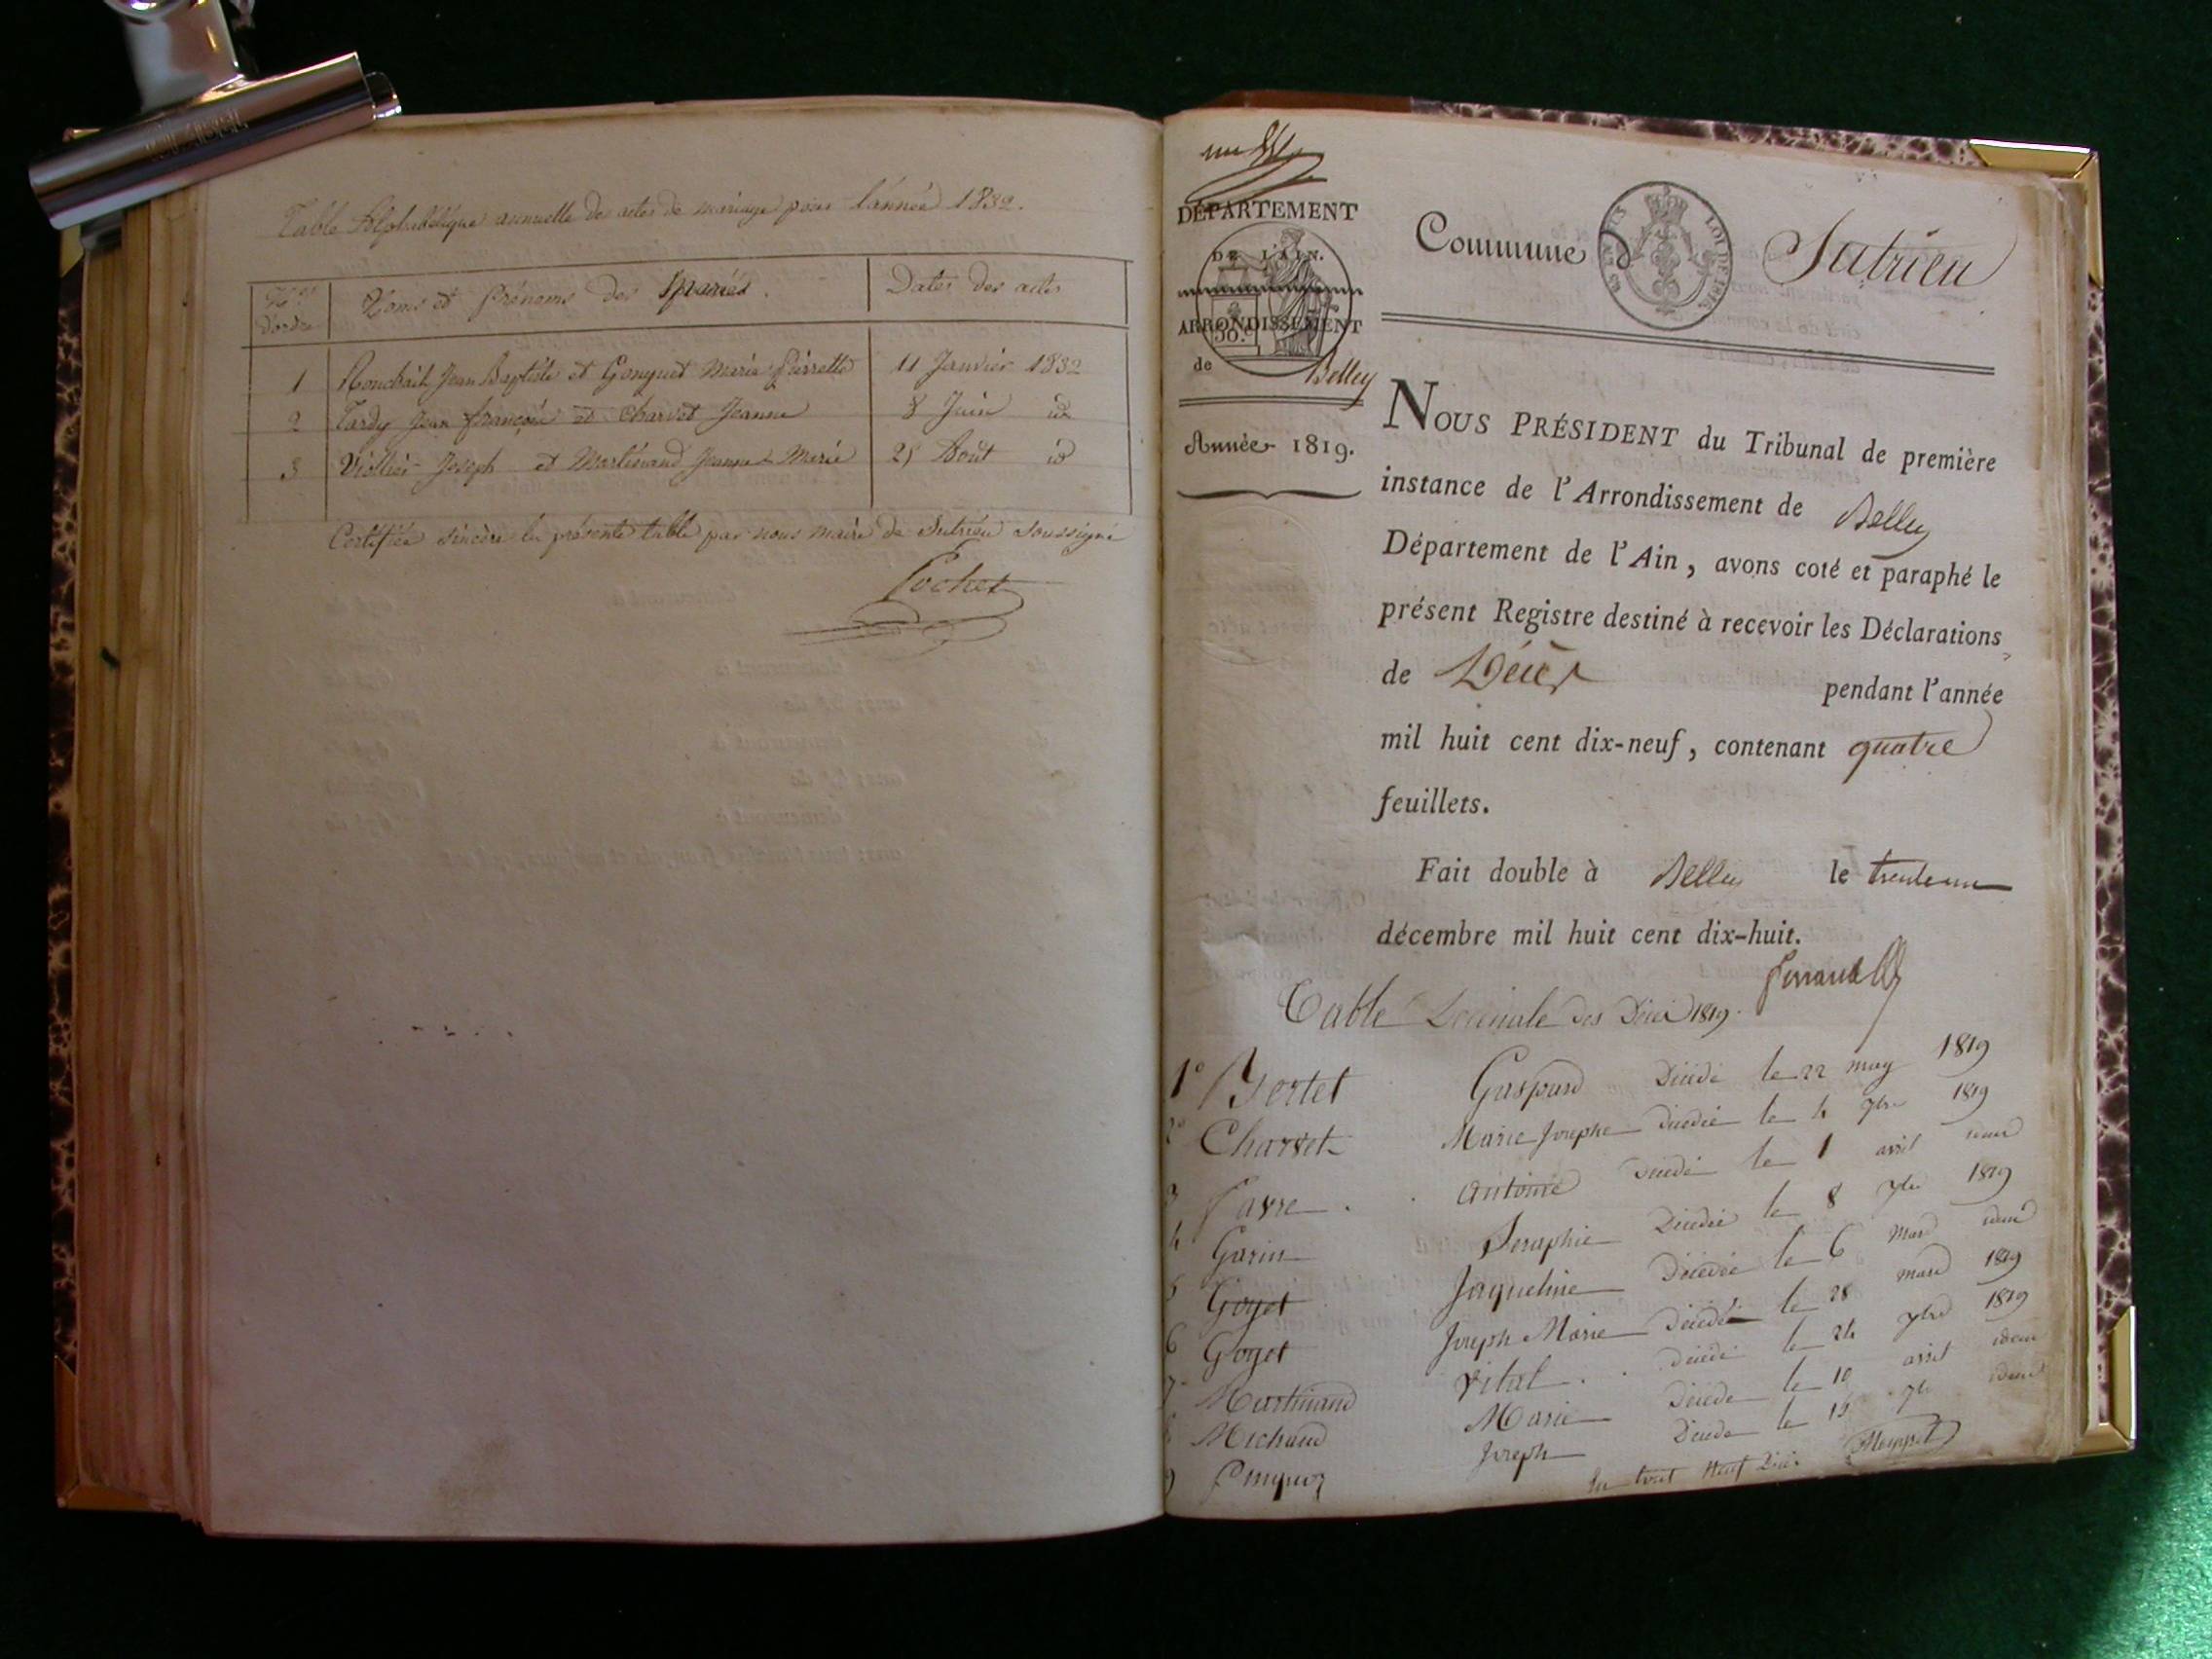 Table Alphabétique annuelle de actes de mariage pour l'année 1832.
N.os d'ordre
Noms et Prénoms des Mariés.
Dates des actes
1 Jean Baptiste et Gonguet Marie Pierrette 11 Janvier 1832
2 Tardy Jean françois et Charvet Jeanne 8 Juin id
3 Viollier Joseph et Martinand Jeanne Marie 25 Aout id
Certifiée sincère la présente table par nous maire de Sutrieu soussigné
Pochet
DÉPARTEMENT
DE L'AIN.
ARRONDISSEMENT
de Belley
Année 1819.
Commune d Sutrieu
LOI DE 1816
NOUS PRÉSIDENT du Tribunal de première
instance de l'Arrondissement de Belley
Département de l'Ain, avons coté et paraphé le
présent Registre destiné à recevoir les Déclarations
de Décès pendant l'année
mil huit cent dix-neuf, contenant quatre
feuillets.
Fait double à Belley le trente un
décembre mil huit cent dix-huit.
Table Décénale des Décès 1819.
1° Bertet Gaspard Décédé le 22 may 1819
2° Charvet Marie Josephe Décédée le 4 7bre 1819
3 Favre Antoine Décédé le 1 avril idem
4 Garin Seraphie Décédée le 8 1819
5 Goyet Jaqueline Décédée le 6 Mars idem
6 Goyet Joseph Marie Décédé le 28 mars 1819
7 Martinand Vital Décédé le 24 1819
8 Michaud Marie Décédé le 10 avril idem
9 Joseph Décédé le idem
En tout Neuf Décès